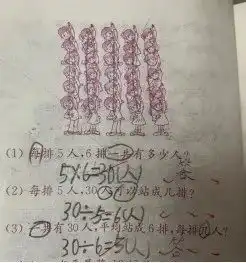 (1) 每排5人,6排一共有多少人?
5×6=30(人) 答
(2) 每排5人,30人可以站成几排?
30÷5=6(人)
(3) 一共有30人,平均站成6排,每排几人?
30÷6=5(人) 答